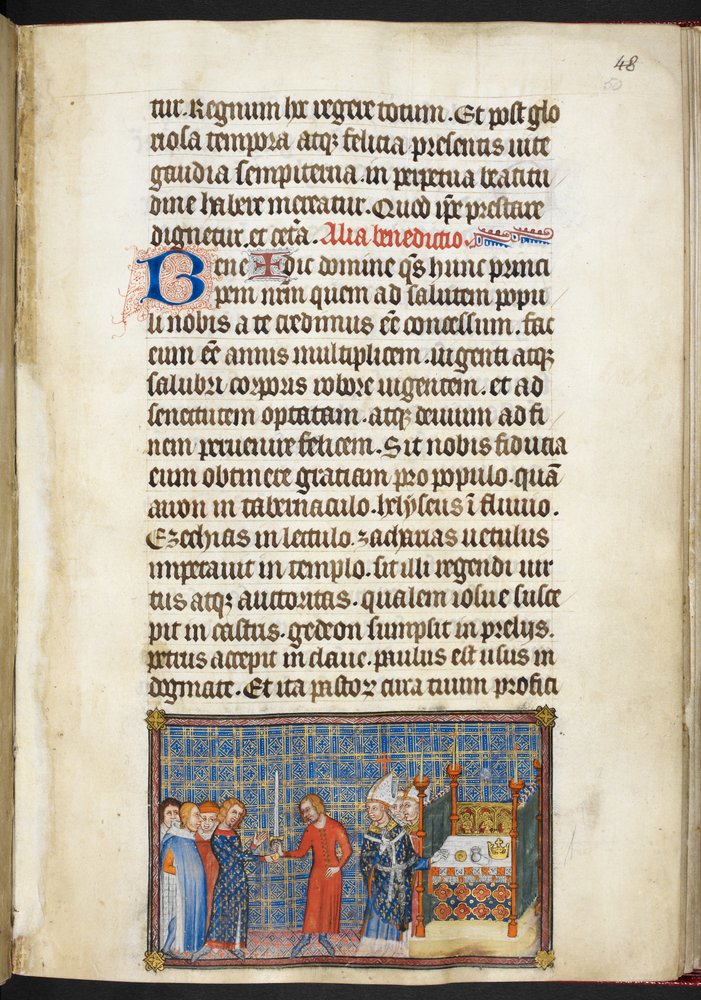 48
50
tur. Regnum hic regere totum. Et post glo
riosa tempora atq; felicia presentis uite
gaudia sempiterna. in perpetua beatitu
dine habere mereatur. Quod ip̄e prestare
dignetur. et cet̄a. Alia benedictio.
Bene ✠ dic domine q̄s hunc princi
pem n̄rm quem ad salutem popu
li nobis a te credimus eē concessum. fac
eum eē annis multiplicem. uigenti atq;
salubri corporis robore uigentem. et ad
senectutem optatam. atq; demum ad fi
nem peruenire felicem. Sit nobis fiducia
eum obtinere gratiam pro populo. quā
aaron in tabernaculo. helyseus ī fluuio.
Ezechias in lectulo. zacharias uetulus
impetrauit in templo. sit illi regendi uir
tus atq; auctoritas. qualem iosue susce
pit in castris. gedeon sumpsit in prelijs.
petrus accepit in claue. paulus est usus in
dogmate. Et ita pastoꝝ cura tuum profici